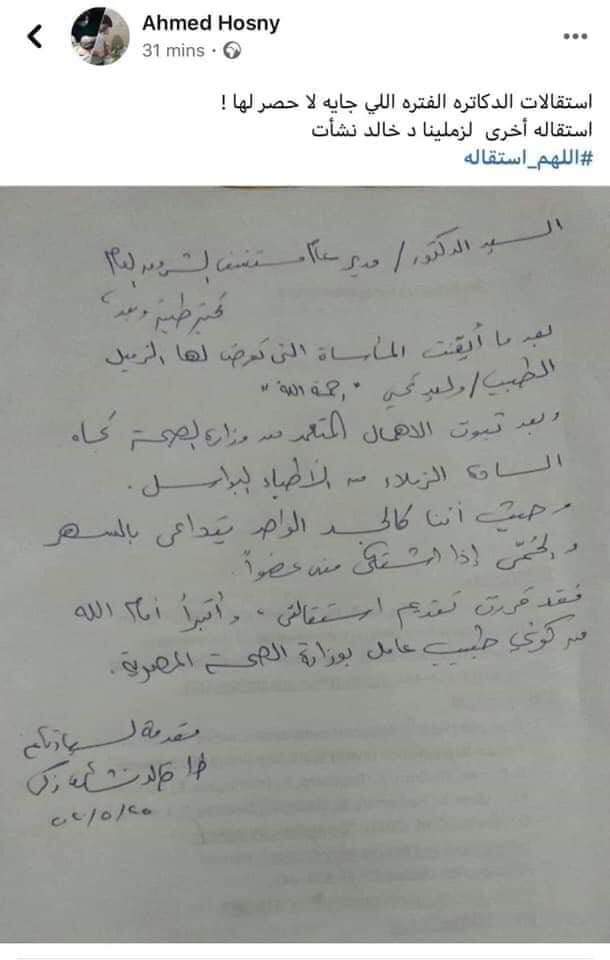 Ahmed Hosny
31 mins ·
استقالات الدكاتره الفتره اللي جايه لا حصر لها !
استقاله أخرى لزملينا د خالد نشأت
#اللهم_استقاله
السيد الدكتور / مدير عام مستشفى
تحية طيبة وبعد،
بعد ما أيقنت المأساة التى تعرض لها الزميل
الطبيب / وليد يحيى "رحمة الله"
وبعد ثبوت الاهمال المتعمد من وزارة الصحة تجاه
السادة الزملاء من الأطباء البواسل.
وحيث أننا كالجسد الواحد يتداعى بالسهر
والحُمّى إذا اشتكى منه عضواً.
فقد قررت تقديم استقالتى، وأتبرأ أمام الله
من كونى طبيب عامل بوزارة الصحة المصرية.
مقدمة لسيادتكم
ط/ خالد نشأت زكى